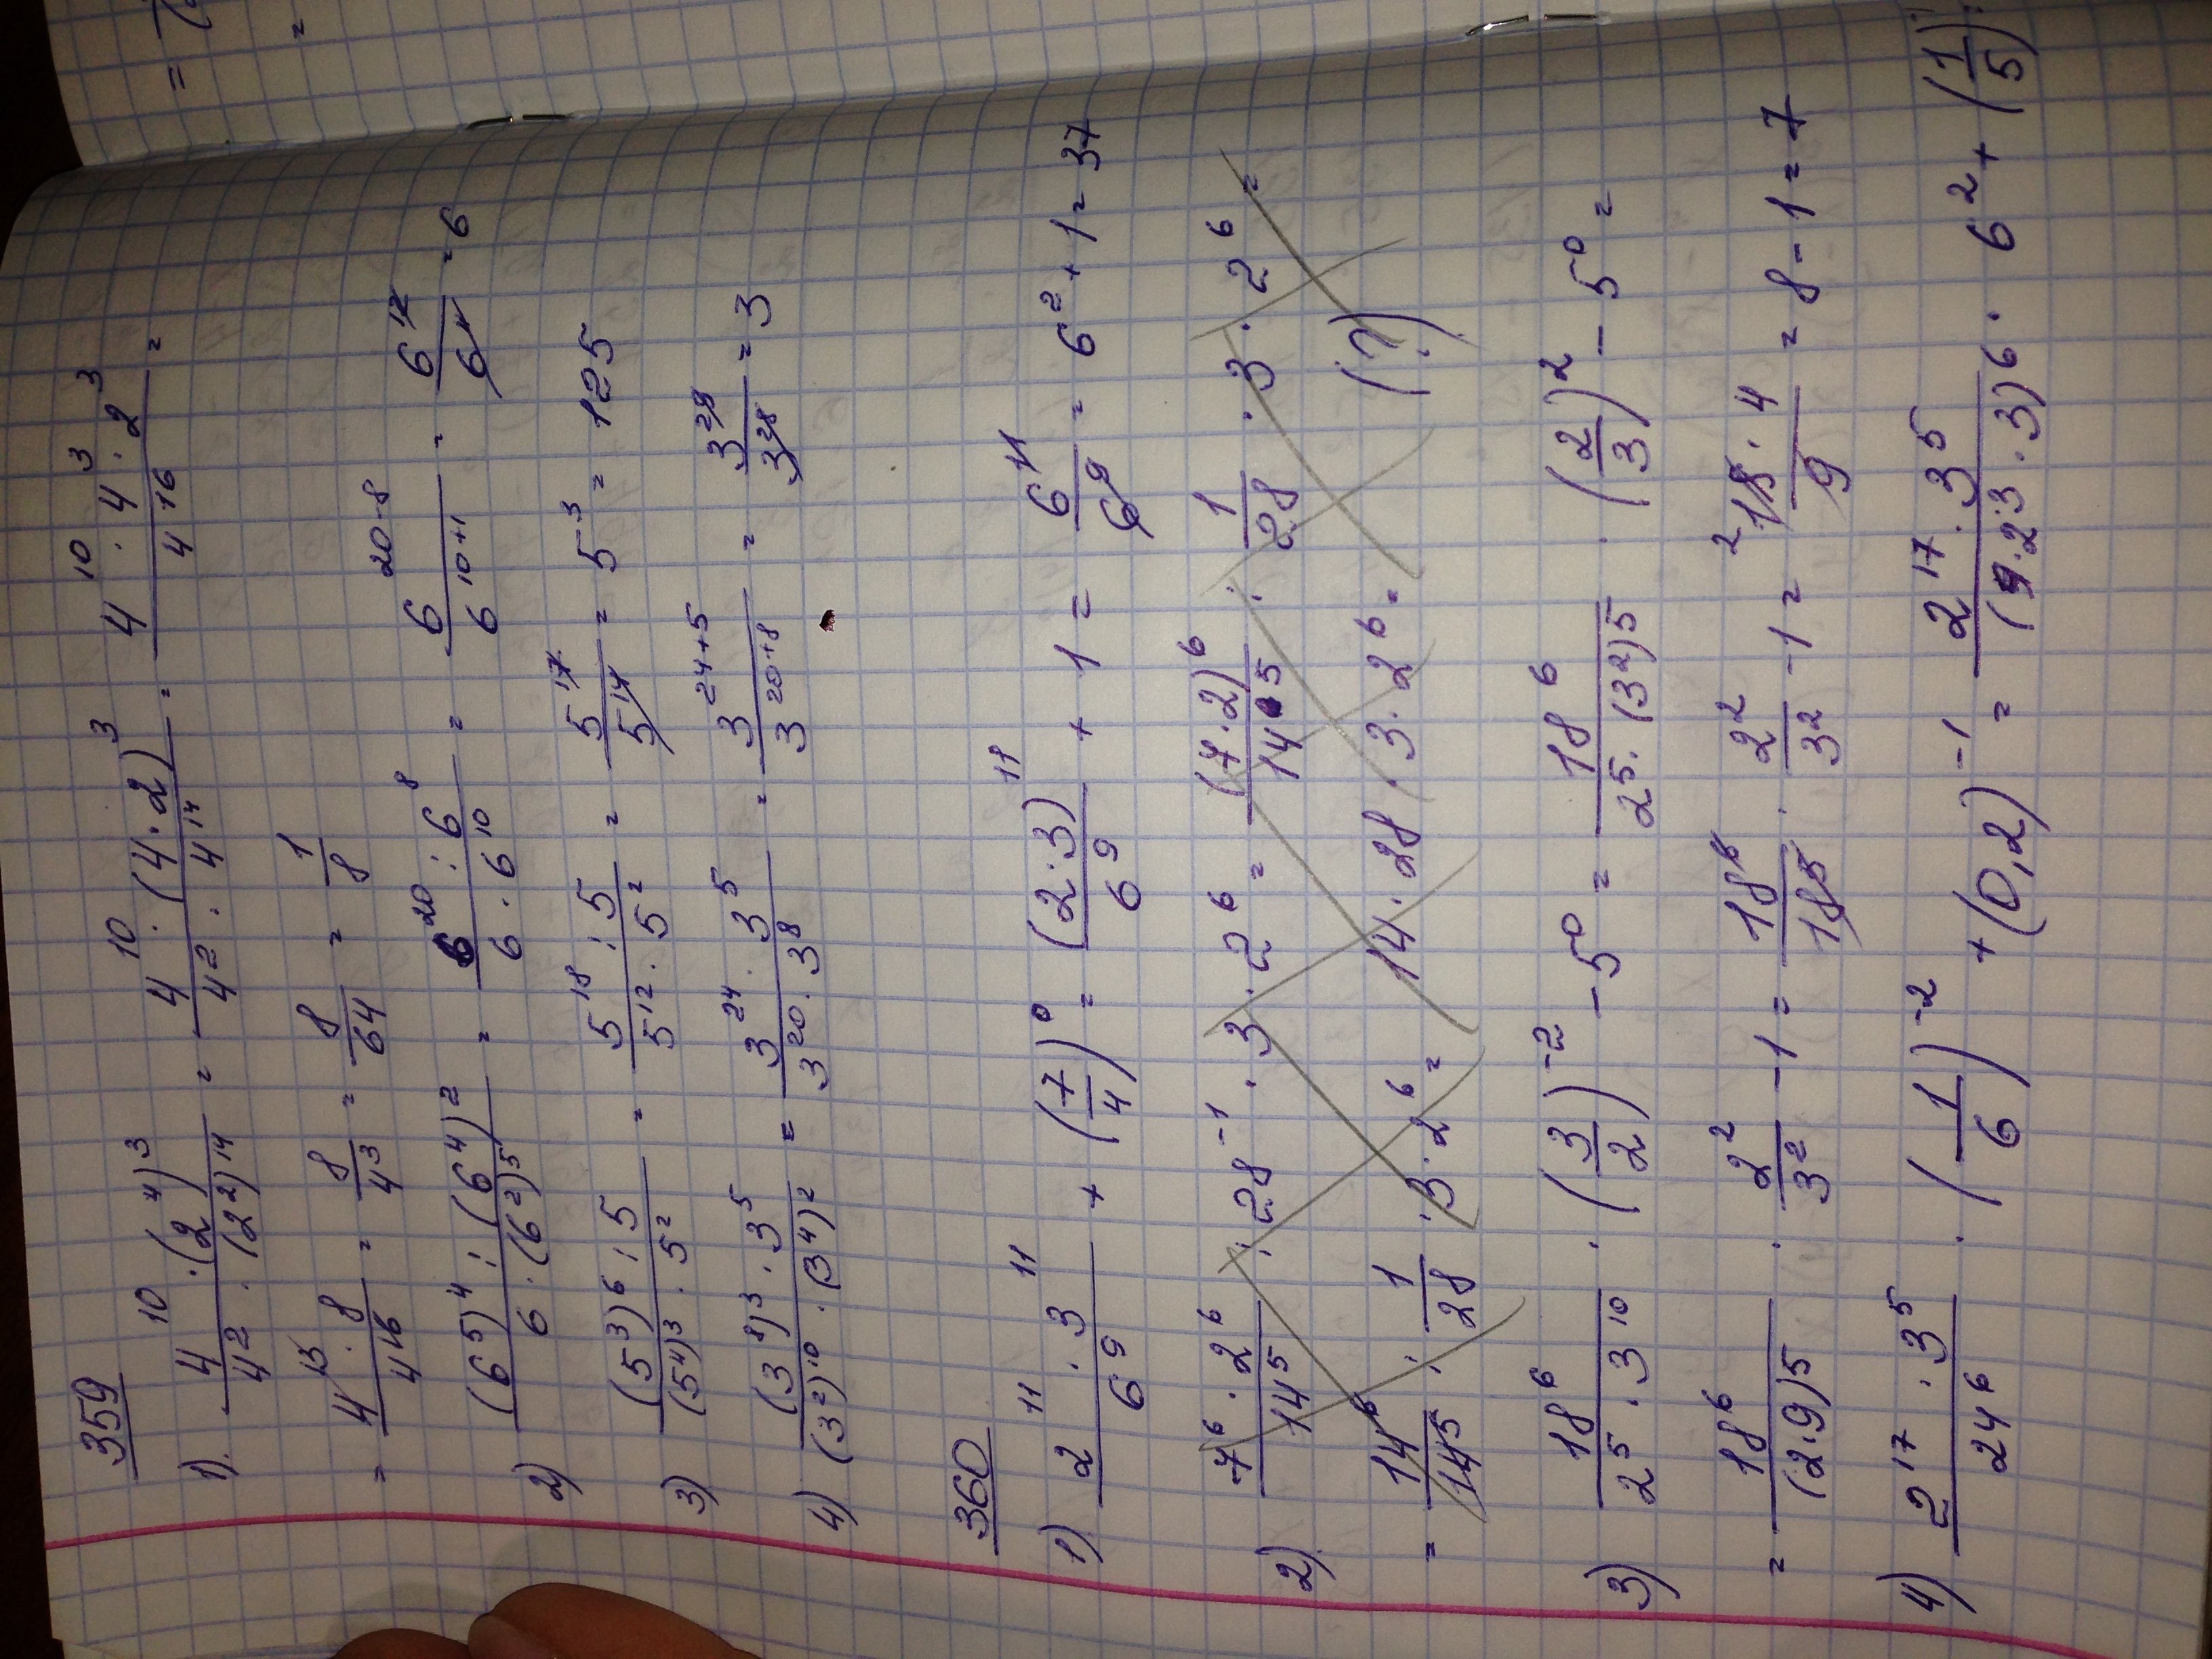 359
1). 4^10 · (2^4)^3 / 4^2 · (2^2)^14 = 4^10 · (4·2)^3 / 4^2 · 4^14 = 4^10 · 4^3 · 2^3 / 4^16 =
= 4^13 · 8 / 4^16 = 8/4^3 = 8/64 = 1/8
2) (6^5)^4 : (6^4)^2 / 6 · (6^2)^5 = 6^20 : 6^8 / 6 · 6^10 = 6^20-8 / 6^10+1 = 6^12 / 6^11 = 6
3) (5^3)^6 : 5 / (5^4)^3 · 5^2 = 5^18 : 5 / 5^12 · 5^2 = 5^17 / 5^14 = 5^3 = 125
4) (3^8)^3 · 3^5 / (3^2)^10 · (3^4)^2 = 3^24 · 3^5 / 3^20 · 3^8 = 3^24+5 / 3^20+8 = 3^29 / 3^28 = 3
360
1) 2^11 · 3^11 / 6^9 + (7/4)^0 = (2·3)^11 / 6^9 + 1 = 6^11 / 6^9 = 6^2 + 1 = 37
2) 7^6 · 2^6 / 14^5 : 28^-1 · 3 · 2^6 = (7·2)^6 / 14^5 : 1/28 · 3 · 2^6 =
= 14^6 / 14^5 : 1/28 · 3 · 2^6 = 14 · 28 · 3 · 2^6 = (?)
3) 18^6 / 2^5 · 3^10 · (3/2)^-2 - 5^0 = 18^6 / 2^5 · (3^2)^5 · (2/3)^2 - 5^0 =
= 18^6 / (2·9)^5 · 2^2/3^2 - 1 = 18^6 / 18^5 · 2^2/3^2 - 1 = 2 18 · 4 / 9 = 8 - 1 = 7
4) 2^17 · 3^5 / 24^6 · (1/6)^-2 + (0,2)^-1 = 2^17 · 3^5 / (2^3 · 3)^6 · 6^2 + (1/5)^-1 =